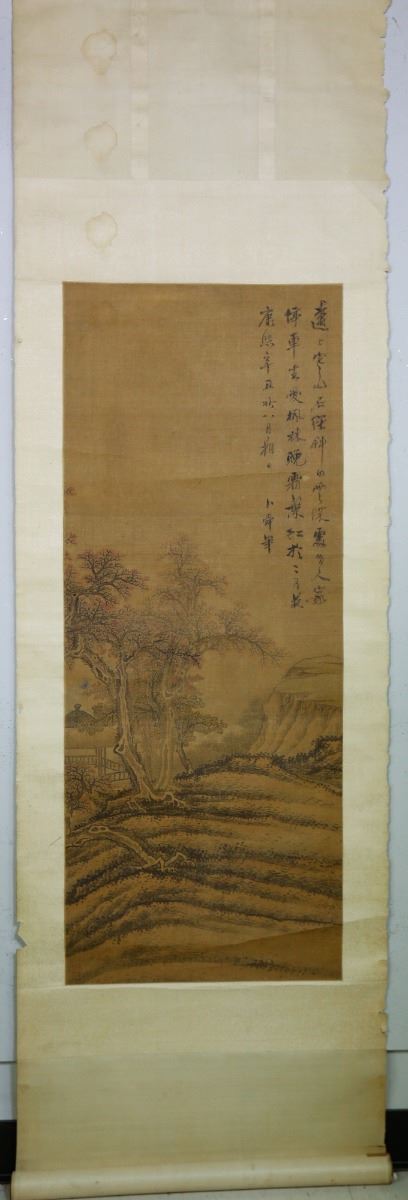 遠上寒山石徑斜白雲深處有人家
停車坐愛楓林晚霜葉紅於二月花
康熙辛丑秋八月朔日 卜舜年